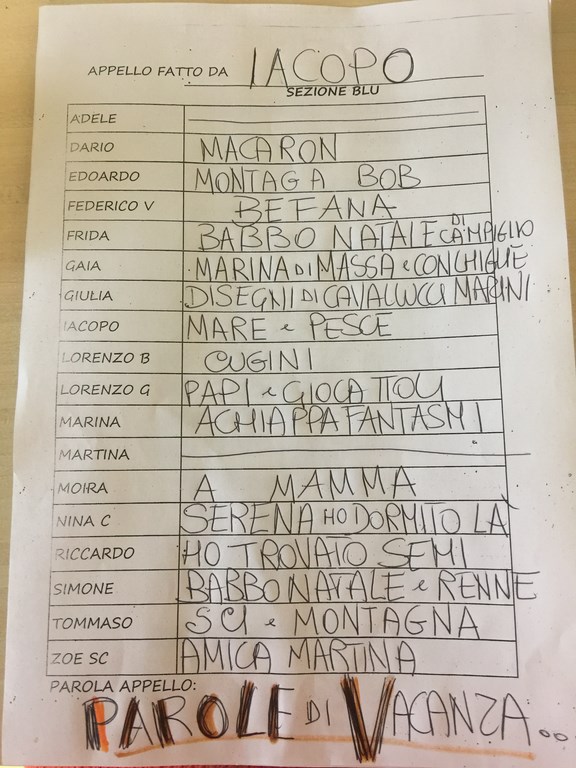 APPELLO FATTO DA IACOPO
SEZIONE BLU
ADELE
DARIO MACARON
EDOARDO MONTAGA BOB
FEDERICO V BEFANA
FRIDA BABBO NATALE DI CAMPIGLIO
GAIA MARINA DI MASSA e CONCHIGLIE
GIULIA DISEGNI DI CAVALLUCCI MARINI
IACOPO MARE e PESCE
LORENZO B CUGINI
LORENZO G PAPI e GIOCATTOLI
MARINA ACHIAPPAFANTASMI
MARTINA
MOIRA A MAMMA
NINA C SERENA HO DORMITO LÀ
RICCARDO HO TROVATO SEMI
SIMONE BABBO NATALE e RENNE
TOMMASO SCI e MONTAGNA
ZOE SC AMICA MARTINA
PAROLA APPELLO:
PAROLE DI VACANZA...